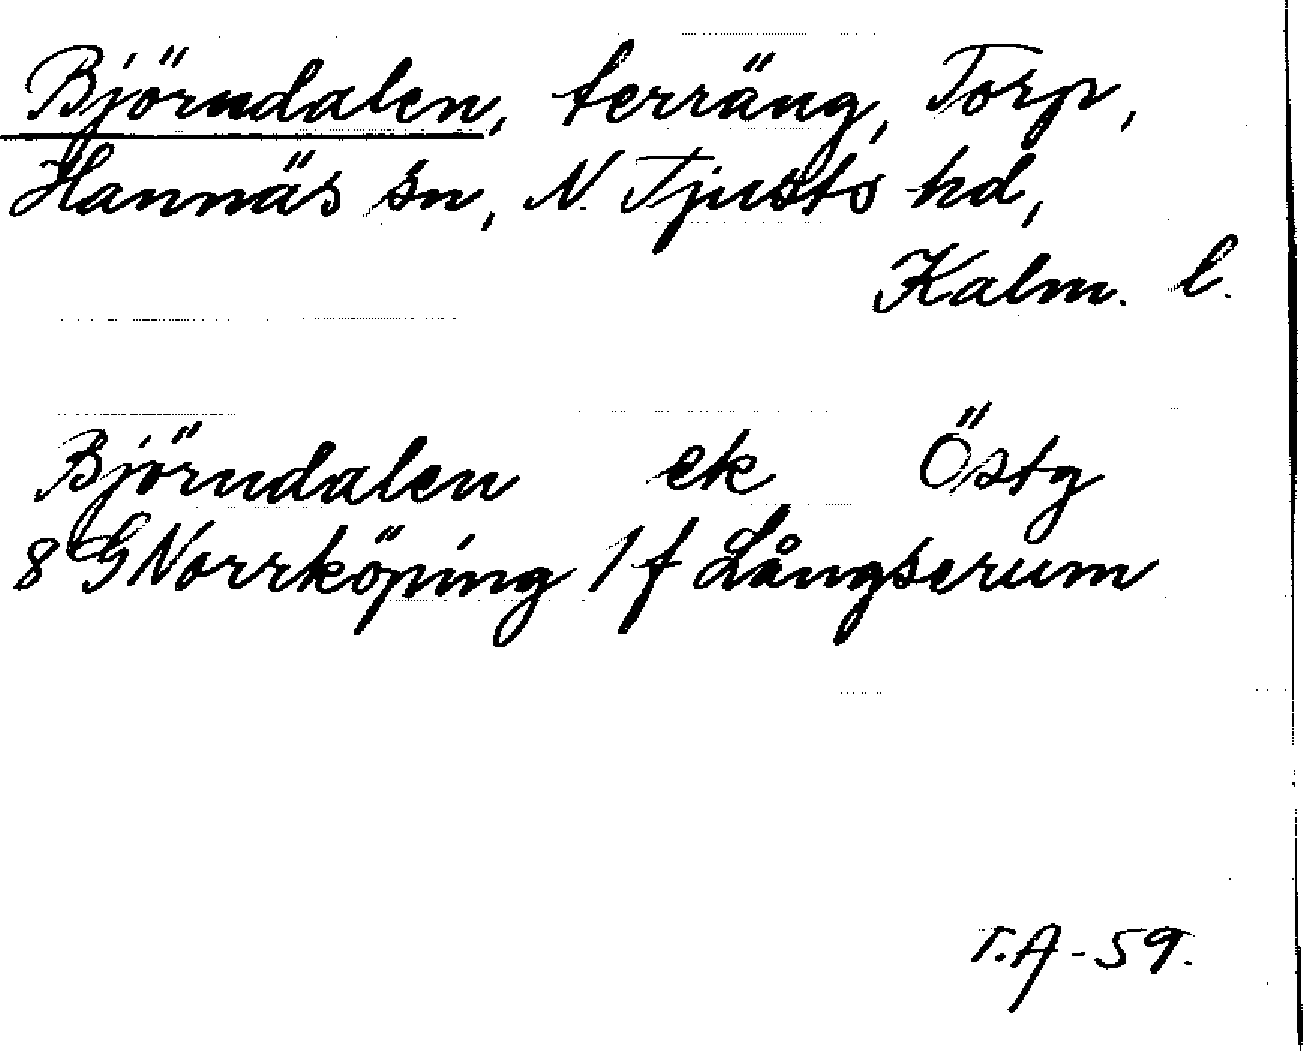 Björndalen, terräng, Torp,
Hannäs sn, N. Tjusts hd,
Kalm. l.
Björndalen ek Östg
8 G Norrköping 1 f Långserum
T.A-59.